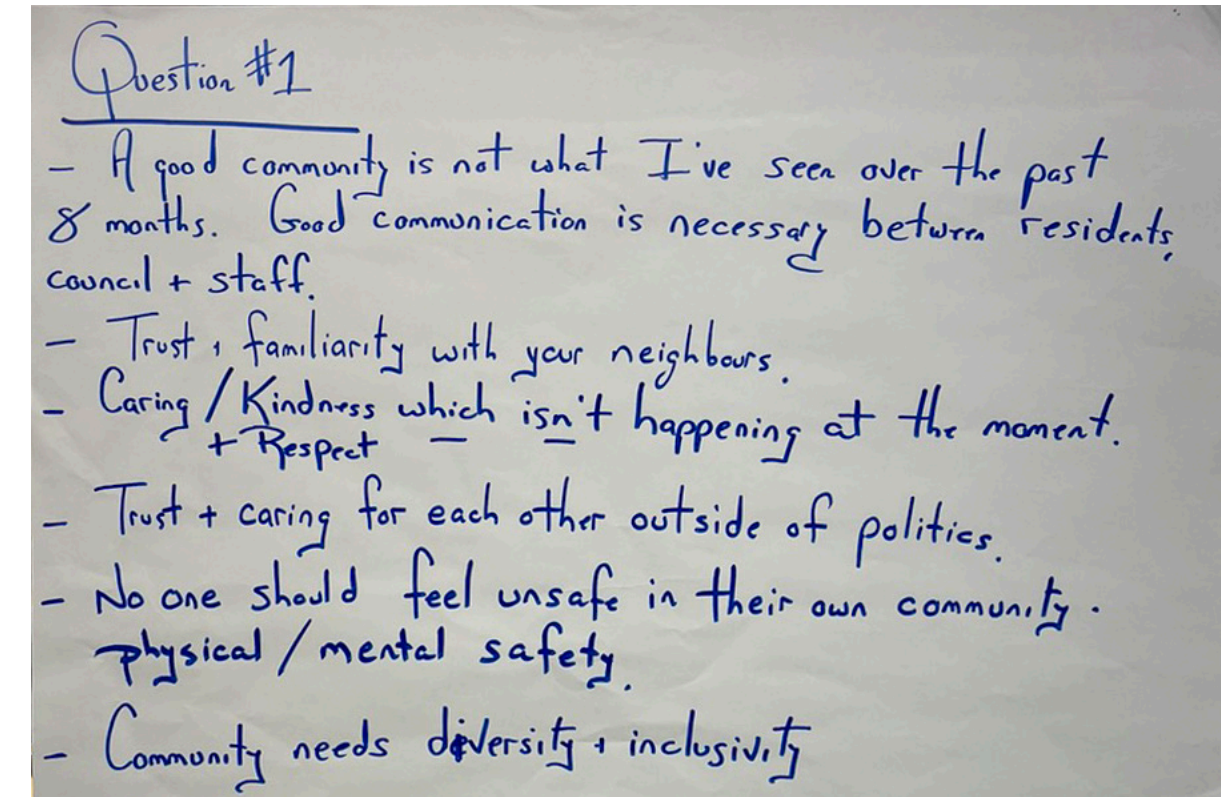 Question #1
- A good community is not what I've seen over the past
8 months. Good communication is necessary between residents,
council + staff.
- Trust + familiarity with your neighbours.
- Caring / Kindness which isn't happening at the moment.
+ Respect
- Trust + caring for each other outside of politics.
- No one should feel unsafe in their own community.
physical / mental safety.
- Community needs diversity + inclusivity